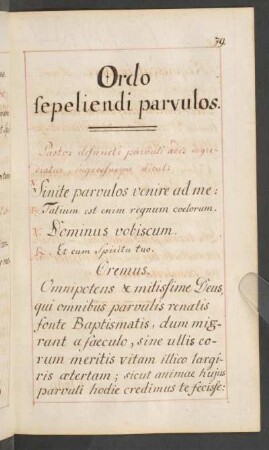 79.
Ordo
sepeliendi parvulos.
Pastor defuncti parvuli
dicat
℣. Sinite parvulos venire ad me:
℟. Talium est enim regnum coelorum.
℣. Dominus vobiscum.
℟. Et cum Spiritu tuo.
Oremus.
Omnipotens & mitissime Deus,
qui omnibus parvulis renatis
fonte Baptismatis, dum mig-
rant a saeculo, sine ullis eo-
rum meritis vitam illico largi-
ris aetertam; sicut animae hujus
parvuli hodie credimus te fecisse: